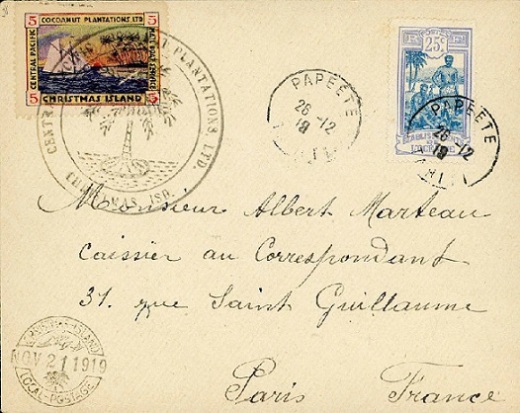 5 COCOANUT PLANTATIONS LTD 5
CENTRAL PACIFIC
5 CHRISTMAS ISLAND 5
PLANTATIONS, LTD.
POSTES
25c
OCÉANIE
PAPEETE
26-12
19
PAPEETE
26-12
19
Monsieur Albert Marteau
caissier au Correspondant
31. rue Saint Guillaume
Paris France
CHRISTMAS ISLAND
NOV 21 1919
LOCAL POSTAGE